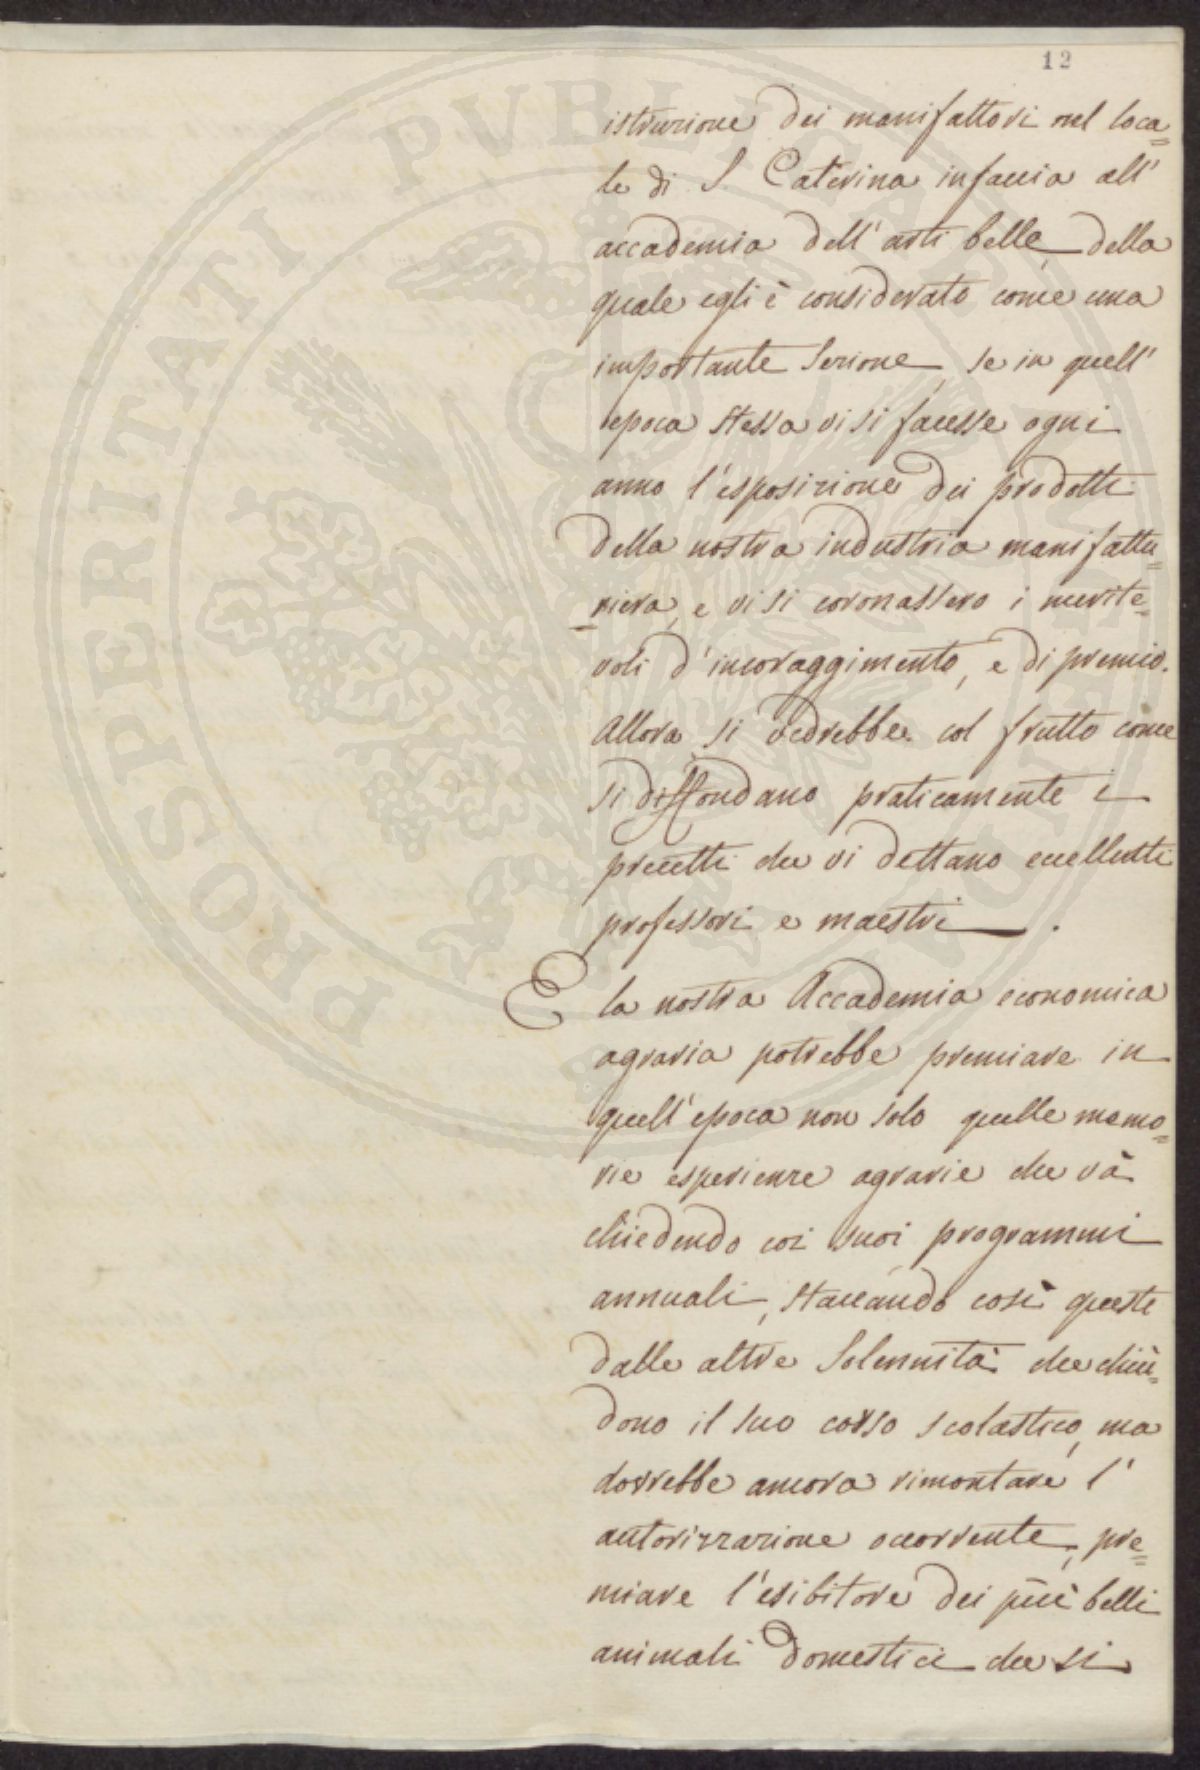 12
istruzione dei manifattori nel loca=
le di S. Caterina in faccia all'
accademia dell'arti belle, della
quale egli è considerato come una
importante Sezione, se in quell'
epoca stessa vi si facesse ogni
anno l'esposizione dei prodotti
della nostra industria manifattu=
riera, e vi si coronassero i merite=
voli d'incoraggimento, e di premio.
Allora si vedrebbe col frutto come
si diffondano praticamente i
precetti che vi dettano eccellenti
professori e maestri.
E la nostra Accademia economica
agraria potrebbe premiare in
quell'epoca non solo quelle memo=
rie esperienze agrarie che và
chiedendo coi suoi programmi
annuali, staccando così queste
dalle altre Solennità che chiu=
dono il suo corso scolastico, ma
dovrebbe ancora rimontare l'
autorizzazione occorrente, pre=
miare l'esibitore dei più belli
animali domestici che si
PROSPERITATI PVBLICAE AVGENDAE